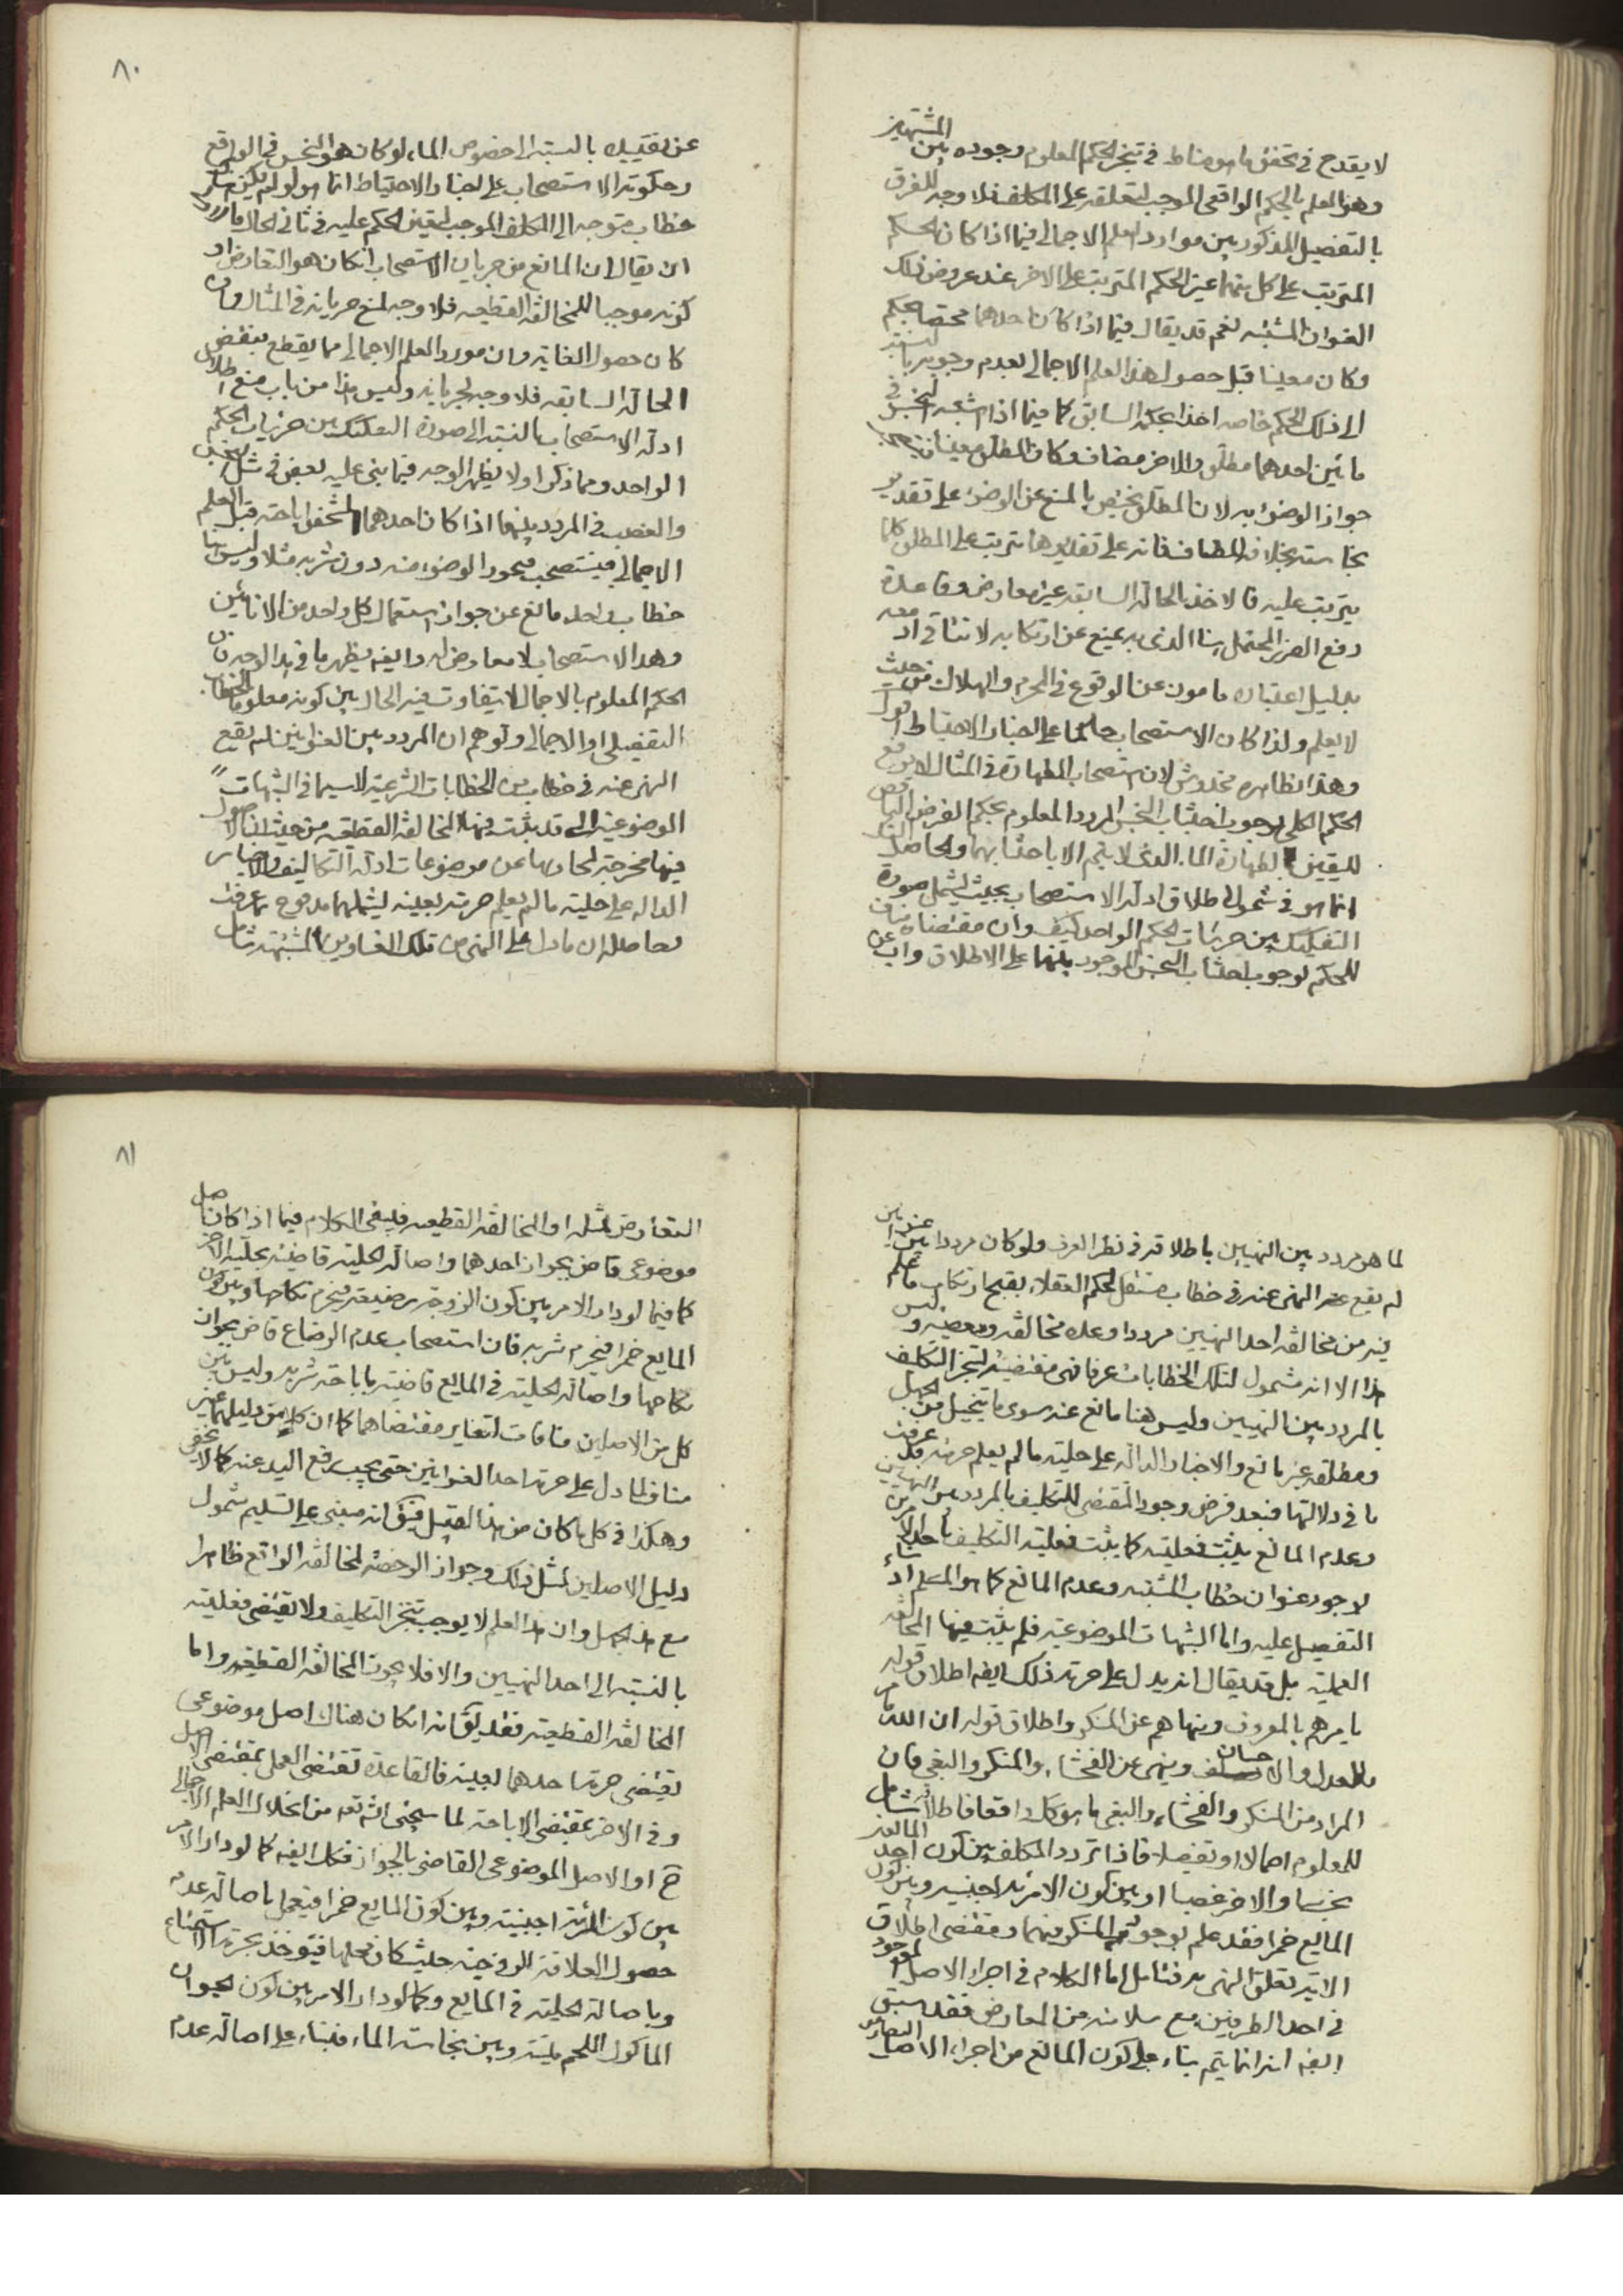 لا يقدح في تحقق ما هو مناط في تنجز الحكم المعلوم وجوده بين المشتبهين
وهو العلم بالحكم الواقعي الموجب لتعلقه على المكلف فلا وجه للفرق
بالتفصيل المذكور بين موارد العلم الاجمالي فيما اذا كان الحكم
المترتب على كل منهما غير الحكم المترتب على الاخر عند عروض ذلك
العنوان المشتبه نعم قد يقال فيما اذا كان احدهما مختصا بحكم
وكان معينا قبل حصول هذا العلم الاجمالي بعدم وجوبه بالنسبة
الى ذلك الحكم خاصه اخذا بحكمه السابق كما فيما اذا اشتبه النجس في
مائين احدهما مطلق والاخر مضاف وكان المطلق معينا
جواز الوضوء به لان المطلق يختص بالمنع عن الوضوء على تقدير
نجاسته بخلاف المضاف فانه على تقديرها يترتب على المطلق كلما
يترتب عليه فالاخذ بالحالة السابقه غير معارض وقاعدة
دفع الضرر المحتمل بناء الذي به يمنع عن ارتكابه لا تنافي اذ معه
بدليل اعتباره مامون عن الوقوع في المحرم والهلاك من حيث
لا يعلم ولذا كان الاستصحاب حاكما على اخبار الاحتياط اقول
وهذا نظاهره مخدوش لان استصحاب الطهارة في المثال لا يرفع
الحكم الكلي بوجوب اجتناب النجس المردد المعلوم بحكم الفرض
لليقين بطهارة الماء الذي لا يتم الا باجتنابهما والحاصل
انما هو في شمول اطلاق ادلة الاستصحاب بحيث يشمل صورة
التفكيك بين جزئيات الحكم الواحد كيف وان مقتضاه مناف
للحكم لوجوب اجتناب النجس الموجود بينهما على الاطلاق واب عن
٨٠
عن تقييده بالنسبة الى خصوص الماء لو كان هو النجس في الواقع
وحكومة الاستصحاب على اخبار الاحتياط انما هو لو لم يكن
خطاب متوجه الى المكلف الموجب ليقين الحكم عليه في ثاني الحال
ان يقال ان المانع من جريان الاستصحاب ان كان هو التعارض او
كونه موجبا للمخالفة القطعيه فلا وجه لمنع جريانه في المثال وان
كان حصول الغاية وان مورد العلم الاجمالي مما يقطع بنقض
الحالة السابقه فلا وجه لجريانه وليس هذا من باب منع اطلاق
ادلة الاستصحاب بالنسبة الى صورة التفكيك بين جزئيات الحكم
الواحد ومما ذكرا ولا يظهر الوجه فيما بنى عليه بعض في مثل النجس
والغصب في المردد بينهما اذا كان احدهما المشخص اباحته قبل العلم
الاجمالي فيستصحب فيجوز الوضوء منه دون شربه مثلا وليس
خطاب واحد مانع عن جواز استعمال كل واحد من الانائين
وهذا الاستصحاب لا معارض له وايضه يظهر ما في هذا الوجه فان
الحكم المعلوم بالاجمال لا يتفاوت فيه الحال بين كونه معلوما بالخطاب
التفصيلي او الاجمالي وتوهم ان المردد بين العنوانين لم يقع
النهي عنه في خطاب من الخطابات الشرعية لاسيما في الشبهات
الموضوعية التي قد يثبت فيها المخالفة القطعيه من حيث ان الاصول
فيها مخرجة لمجاريها عن موضوعات ادلة التكاليف والاخبار
الداله على حلية ما لم يعلم حرمته بعينه ليشملهما مدفوع بما عرفت
وحاصله ان ما دل على النهي من تلك العناوين المشتبهة شامل
لما هو مردد بين النهيين باطلاقه في نظر العرف ولو كان مرددا بين عنوانين
لم يقع النهي عنه في خطاب مستقل لحكم العقلاء بقبح ارتكاب ما علم
فيه من مخالفة احد النهيين مرددا وعده مخالفة ومعصية وليس
هذا الا انه مشمول لتلك الخطابات عرفا فهي مقتضية لتنجز التكلف
بالمردد بين النهيين وليس هنا مانع عنه سوى ما يتخيل من الجهل
ومطلقه غير مانع والاخبار الدالة على حلية ما لم يعلم حرمته قد عرفت
ما في دلالتها فبعد فرض وجود المقتضي للتكليف بالمردد بين النهيين
وعدم المانع يثبت فعليته كما يثبت فعلية التكليف باحد الامرين
لوجود عنوان خطاب المشتبه وعدم المانع كما هو المسلم
التفصيل عليه واما الشبهات الموضوعية فلم يثبت فيها المخالفة
العملية بل قد يقال انه يدل على حرمة ذلك ايضه اطلاق قوله
يامرهم بالمعروف وينهاهم عن المنكر واطلاق قوله ان الله يامر
بالعدل والاحسان وينهى عن الفحشاء والمنكر والبغي فان
المراد من المنكر والفحشاء والبغي ما هو كك واقعا فاطلاقه شامل
للمعلوم اجمالا او تفصيلا فاذا تردد المكلف بين كون احد المايعين
نجسا والاخر غصبا او بين كون الامرئة اجنبيه وبين كون
المايع خمرا فقد علم بوجود المنكر فيهما ومقتضى اطلاق
الاية تعلق النهي به فتامل اما الكلام في اجراء الاصل الموجود
في احد الطرفين مع سلامته من المعارض فقد سبق
ايضه انه انما يتم بناء على كون المانع من اجراء الاصل التعارض
٨١
التعارض لمثله او المخالفة القطعيه فيبقى الكلام فيما اذا كان اصل
موضوعي قاض بجواز احدهما واصالة الحلية قاضية بحلية الاخر
كما فيما لو دار الامر بين كون الزوجة رضيعة فيحرم نكاحها وبين كون
المايع خمرا فيحرم شربه فان استصحاب عدم الرضاع قاض بجواز
نكاحها واصالة الحلية في المايع قاضية باباحة شربه وليس بين
كل من الاصلين منافات لتغاير مقتضاهما كما ان كلا من دليلهما غير
مناف لما دل على حرمة احد العنوانين حتى يجب رفع اليد عنه كما لا يخفى
وهكذا في كل ما كان من هذا القبيل فيق انه مبني على تسليم شمول
دليل الاصلين لمثل ذلك وجواز الرخصة لمخالفة الواقع ظاهرا
مع هذا الجهل وان هذا العلم لا يوجب تنجز التكليف ولا تقتضي فعليته
بالنسبة الى احد النهيين والا فلا يجوز المخالفة القطعية واما
المخالفة القطعية فقد يق انه ان كان هناك اصل موضوعي
يقتضي حرمة احدهما لعينه فالقاعدة تقتضي العمل بمقتضى الاصل
وفي الاخر بمقتضى الاباحة لما سيجئ انش تعه من انحلال العلم الاجمالي
ح او الاصل الموضوعي القاضي بالجواز فكك ايضه كما لو دار الامر
بين كون المرئة اجنبية وبين كون المايع خمرا فيعمل باصالة عدم
حصول العلاقة الزوجية حيث كان محلها فيؤخذ بحرمة الاستمتاع
وباصالة الحلية في المايع وكما لو دار الامر بين كون الحيوان
الماكول اللحم ميتة وبين نجاسة الماء فبناء على اصالة عدم